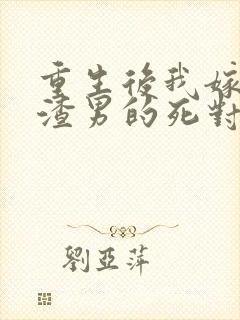 重生後我嫁
渣男的死對
劉亞萍